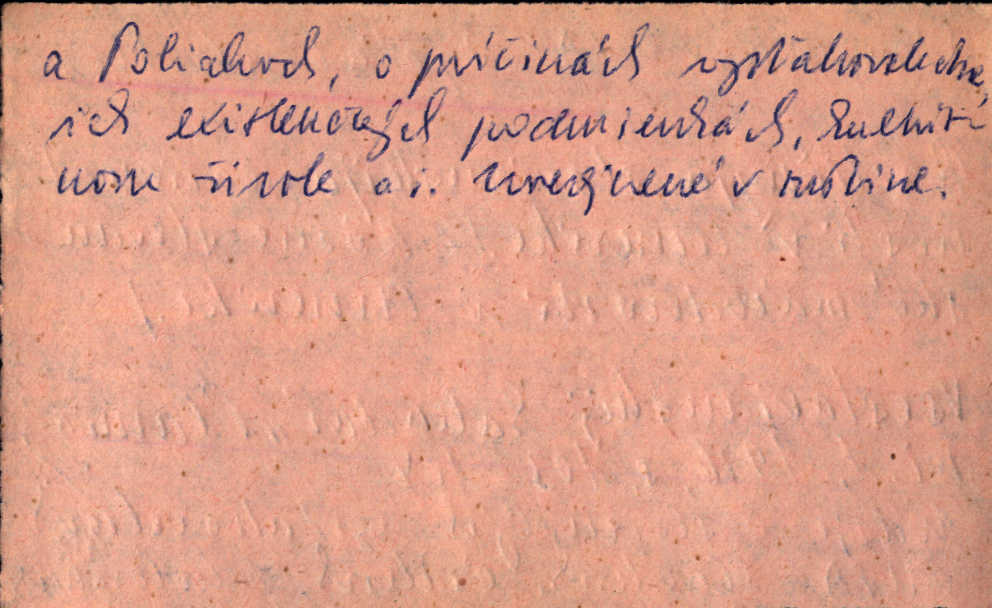 a Poliakoch, o príčinách vysťahovalectva,
ich existenčných podmienkách, kultúr-
nom živote a i. Uverejnené v ruštine.